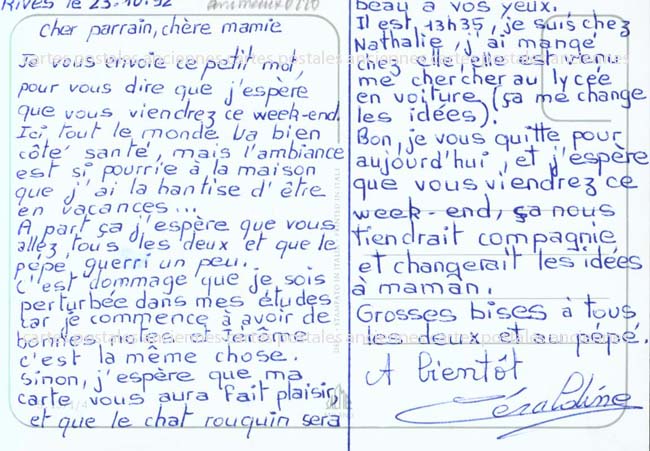 Rives le 23.10.92
Cher parrain, chère mamie
Je vous envoie ce petit mot,
pour vous dire que j'espère
que vous viendrez ce week-end.
Ici tout le monde va bien
côté santé, mais l'ambiance
est si pourrie à la maison
que j'ai la hantise d'être
en vacances...
A part ça j'espère que vous
allez tous les deux et que le
pépé guerri un peu.
C'est dommage que je sois
perturbée dans mes études
car je commence à avoir de
bonnes notes et Jérôme
c'est la même chose.
Sinon, j'espère que ma
carte vous aura fait plaisir,
et que le chat rouquin sera
beau à vos yeux.
Il est 13h35, je suis chez
Nathalie, j'ai mangé
chez elle, elle est venu
me chercher au lycée
en voiture (ça me change
les idées).
Bon, je vous quitte pour
aujourd'hui, et j'espère
que vous viendrez ce
week-end, ça nous
tiendrait compagnie
et changerait les idées
à maman.
Grosses bises à tous
les deux et au pépé.
A bientôt
Géraldine
cartes postales anciennes cartes postales anciennes cartes postales anciennes